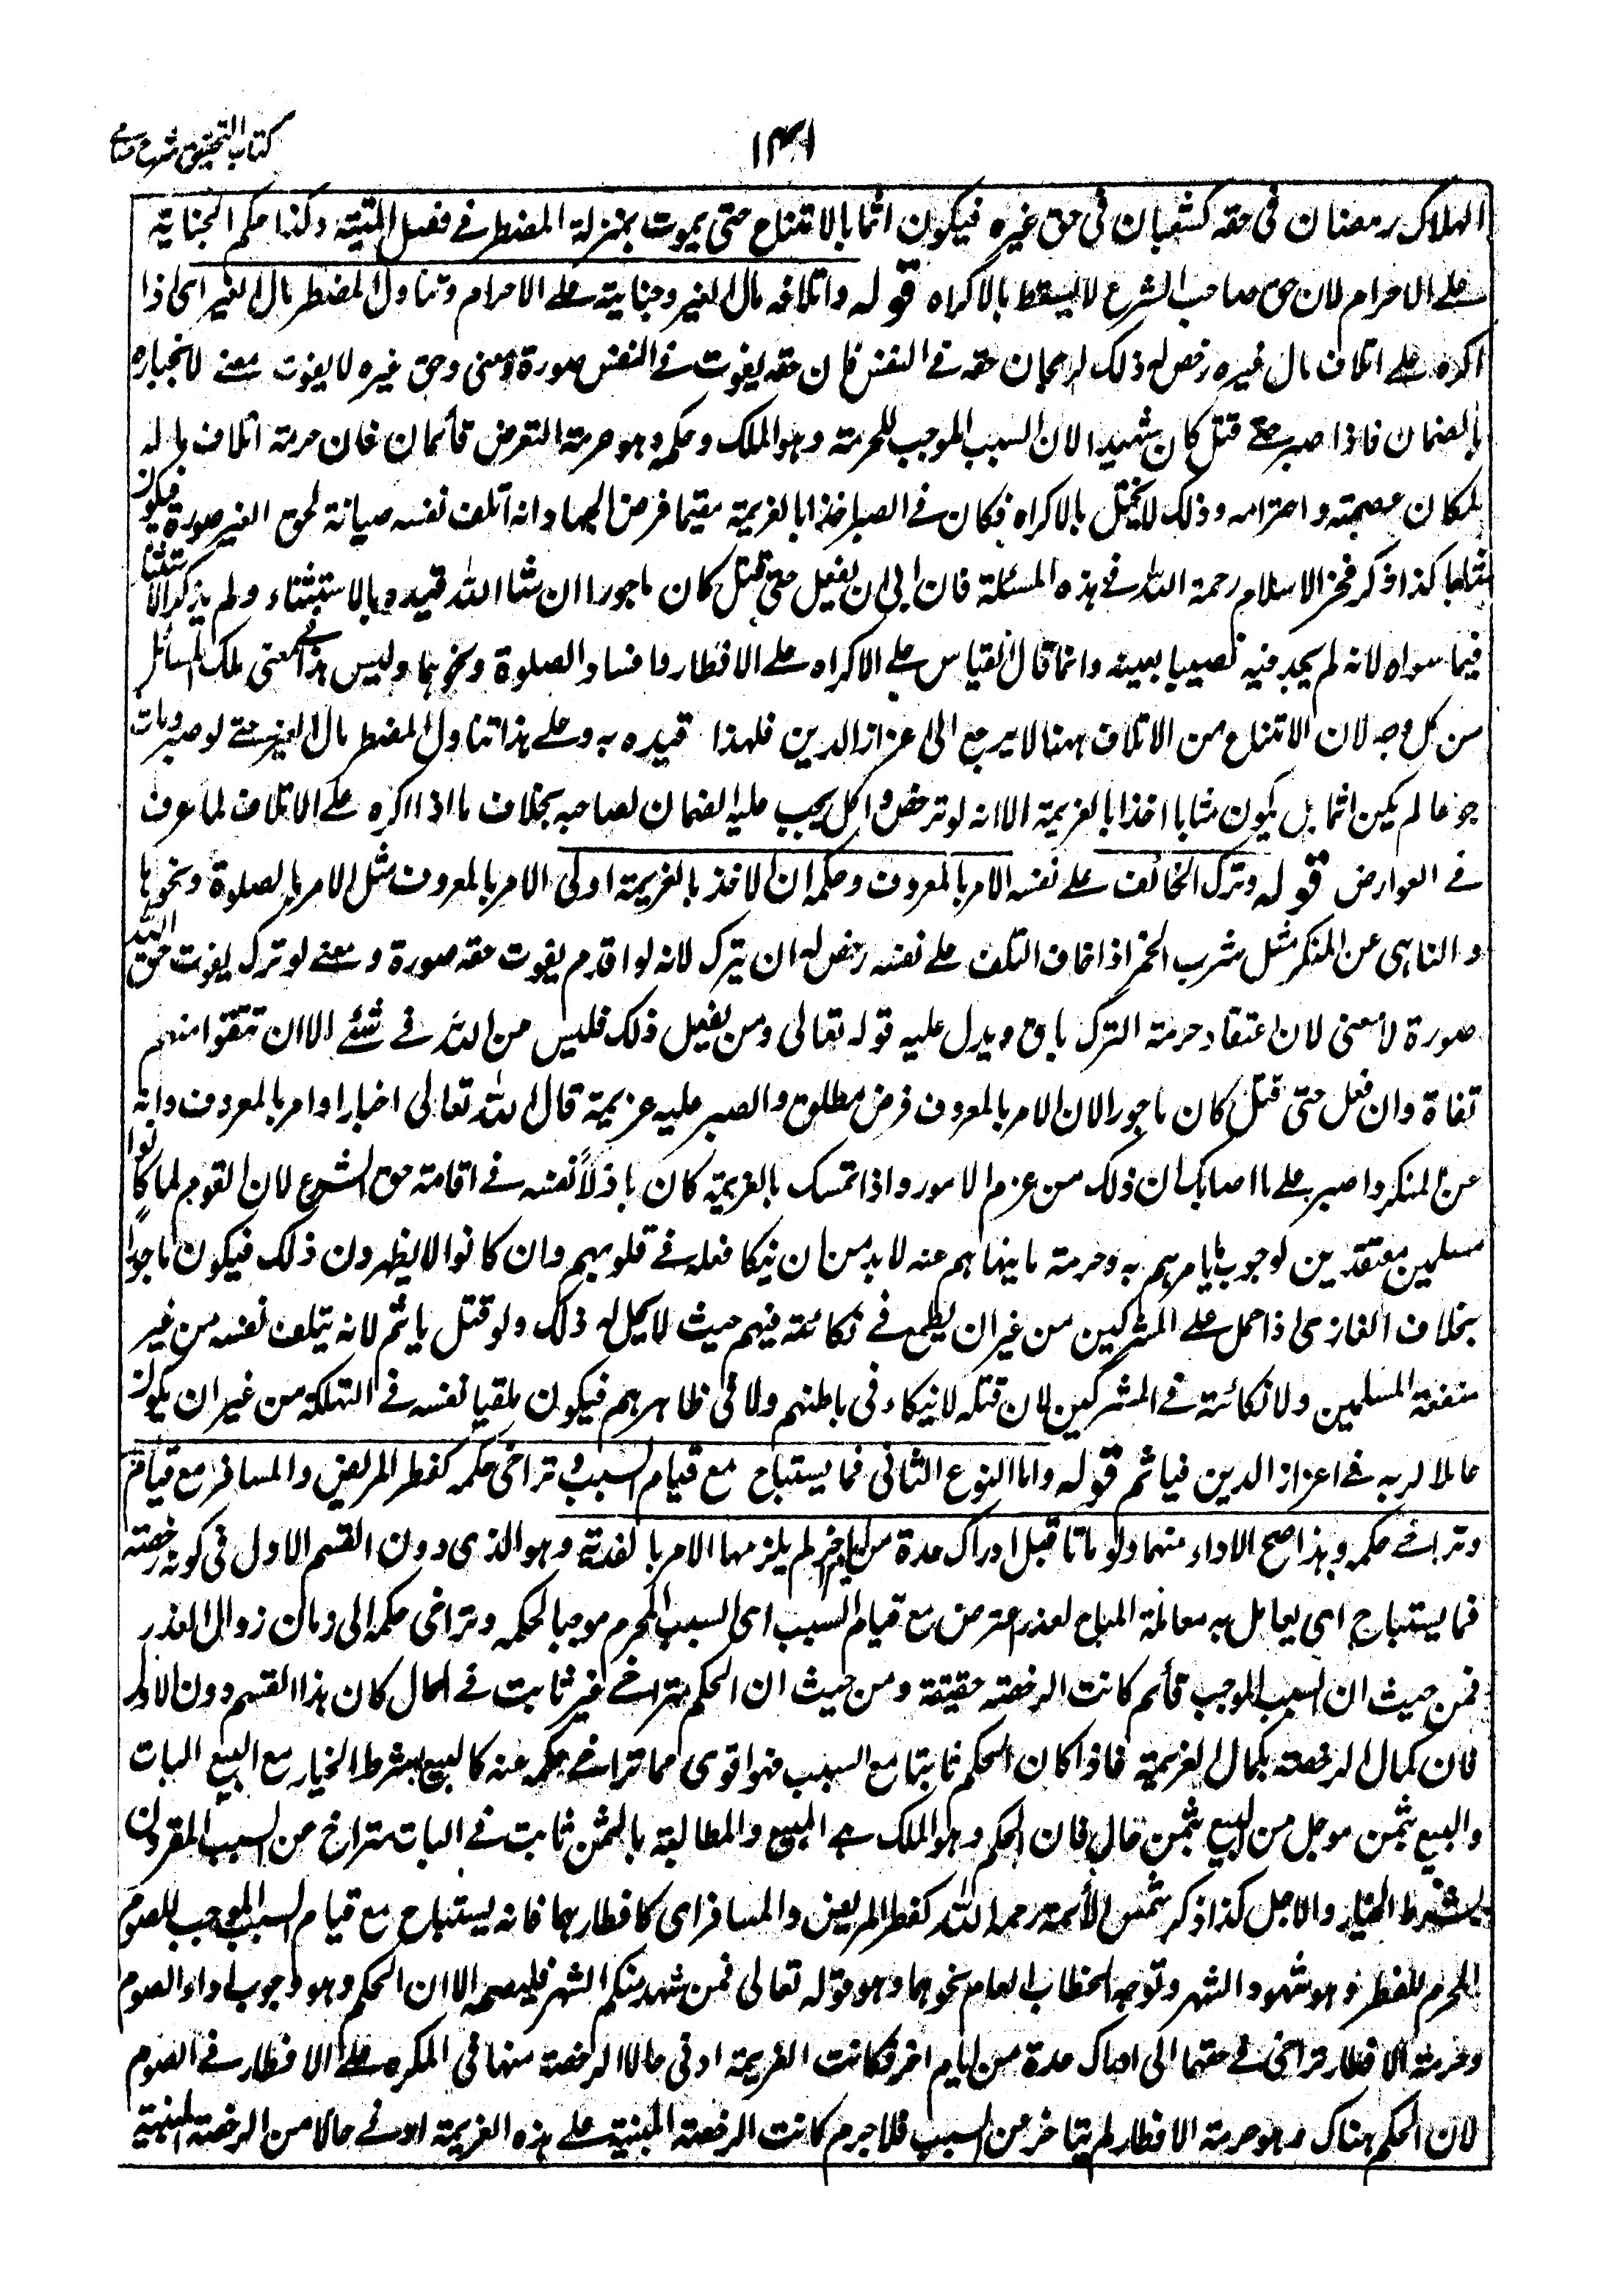 كتاب التحقيق شرح حسامي
١٣٨١
الهلاك رمضان فى حقه كشعبان فى حق غيره فيكون اثما بالامتناع حتى يموت بمنزلة المضطر فے فصل الميتة وكذا حكم الجناية
علے الاحرام لان حق صاحب الشرع لا يسقط بالاكراه قوله واتلافه مال الغير وجنايته علے الاحرام وتناول المضطر مال الغير اى اذا
اكره علے اتلاف مال غيره رخص له ذلك لرجحان حقه فے النفس فان حقه يفوت فے النفس صورة ومعنى وحق غيره لا يفوت معنے لانجباره
بالضمان فاذا صبر حتے قتل كان شهيدا لان السبب الموجب للحرمة وهو الملك وحكمه وهو حرمة التعرض قائمان فان حرمة اتلاف ماله
لمكان عصمته واحترامه وذلك لا يختل بالاكراه فكان فے الصبر اخذا بالعزيمة مقيما فرض الجهاد لانه اتلف نفسه صيانة لحق الغير صورة فيكون
مثابا كذا ذكر فخر الاسلام رحمة الله فے هذه المسئلة فان ابى ان يفعل حتى قتل كان ماجورا ان شاء الله قيده بالاستثناء ولم يذكر الاستثناء
فيما سواه لانه لم يجد فيه نصيبا بعينه وانما قال القياس علے الاكراه علے الافطار وافساد الصلوة ونحوهما وليس هذا فے معنى تلك المسائل
من كل وجه لان الامتناع من الاتلاف ههنا لا يرجع الى اعزاز الدين فلهذا قيده به وعلے هذا تناول المضطر مال الغير حتے لو صبر ومات
جوعا لم يكن اثما بل يكون مثابا اخذا بالعزيمة الا انه لو ترخص واكل يجب عليه الضمان لصاحبه بخلاف ما اذا اكره علے الاتلاف لما عرف
فے العوارض قوله وترك الخائف علے نفسه الامر بالمعروف وحكمه ان الاخذ بالعزيمة اولى الامر بالمعروف مثل الامر بالصلوة ونحوها
والناهى عن المنكر مثل شرب الخمر اذا خاف التلف علے نفسه رخص له ان يترك لانه لو اقدم يفوت حقه صورة ومعنے لو ترك يفوت حق الله
صورة لا معنى لان اعتقاد حرمة الترك باق ويدل عليه قوله تعالى ومن يفعل ذلك فليس من الله فے شئے الا ان تتقوا منهم
تقاة وان فعل حتى قتل كان ماجورا لان الامر بالمعروف فرض مطلق والصبر عليه عزيمة قال الله تعالى اخبارا وامر بالمعروف وانه
عن المنكر واصبر علے ما اصابك ان ذلك من عزم الامور واذا تمسك بالعزيمة كان باذلاً نفسه فے اقامة حق الشرع لان القوم لما كانوا
مسلمين معتقدين لوجوب ما يامرهم به وحرمة ما ينهاهم عنه لا بد من ان ينكا فعله فے قلوبهم وان كانوا لا يظهرون ذلك فيكون ماجورا
بخلاف الغازى اذا حمل علے المشركين من غير ان يطمع فے نكائته فيهم حيث لا يحل له ذلك ولو قتل ياثم لانه يتلف نفسه من غير
منفعة المسلمين ولا نكائة فے المشركين لان قتله لا ينكاء فى باطنهم ولا فى ظاهرهم فيكون ملقيا نفسه فے التهلكة من غير ان يكون
عاملا لربه فے اعزاز الدين فياثم قوله واما النوع الثانى فما يستباح مع قيام السبب وتراخى حكمه كفطر المريض والمسافر مع قيامه
وتراخے حكمه وبهذا صح الاداء منهما ولو ماتا قبل ادراك عدة من ايام اخر لم يلزمهما الامر بالفدية وهو الذى دون القسم الاول فى كونه رخصة
فما يستباح اى يعامل به معاملة المباح لعذر اعترض مع قيام السبب اى السبب المحرم موجبا لحكمه وتراخى حكمه الى زمان زوال العذر
فمن حيث ان السبب الموجب قائم كانت الرخصة حقيقة ومن حيث ان الحكم متراخے غير ثابت فے الحال كان هذا القسم دون الاول
فان كمال الرخصة بكمال العزيمة فاذا كان الحكم ثابتا مع السبب فهو اقوى مما تراخے حكمه عنه كالبيع بشرط الخيار مع البيع البات
والبيع بثمن موجل من البيع بثمن حال فان الحكم وهو الملك فے المبيع والمطالبة بالثمن ثابت فے البات متراخ من السبب المقرون
بشرط الخيار والاجل كذا ذكر شمس الأئمة رحمه الله كفطر المريض والمسافر اى كافطارهما فانه يستباح مع قيام السبب الموجب للصوم
المحرم للفطر وهو شهود الشهر وتوجه الخطاب العام نحوهما وهو قوله تعالى فمن شهد منكم الشهر فليصمه الا ان الحكم وهو وجوب اداء الصوم
وحرمة الافطار تراخى فے حقهما الى ادراك عدة من ايام اخر فكانت العزيمة ادنى حالا الرخصة منها فى المكره علے الافطار فے الصوم
لان الحكم هناك وهو حرمة الافطار لم يتاخر من السبب فلا جرم كانت الرخصة المبنية علے هذه العزيمة ادنے حالا من الرخصة المبنية